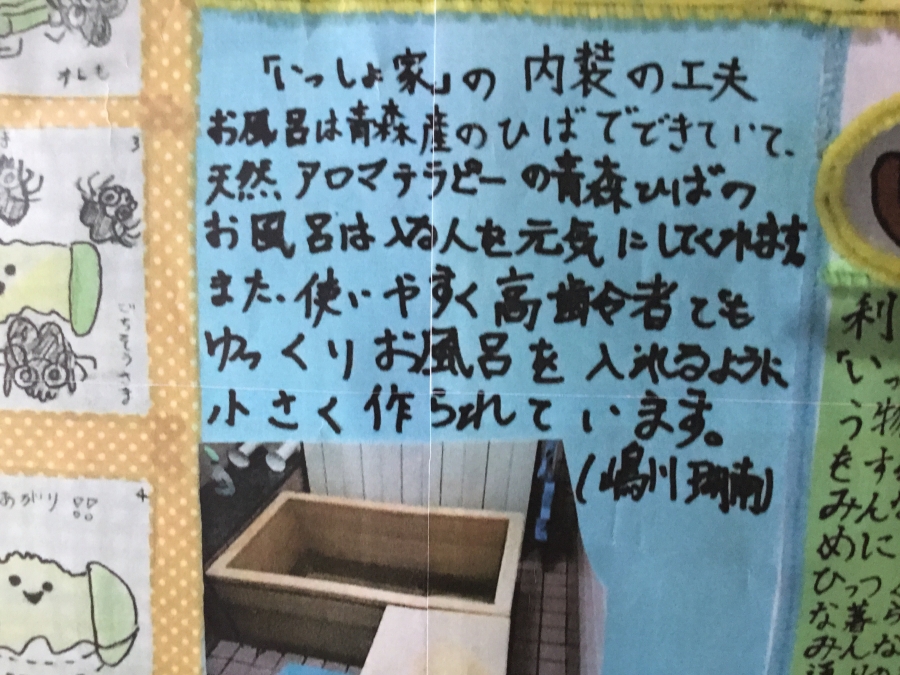 「いっしょ家」の内装の工夫
お風呂は青森産のひばでできていて、
天然アロマテラピーの青森ひばの
お風呂は入る人を元気にしてくれます。
また、使いやすく高齢者でも
ゆっくりお風呂を入れるように
小さく作られています。
(嶋川瑚南)
オレも
3
ごちそうさま
あがり
4
利
「いっ
う物
をす
みんな
めに
ひっつく
な暮ら
みんな